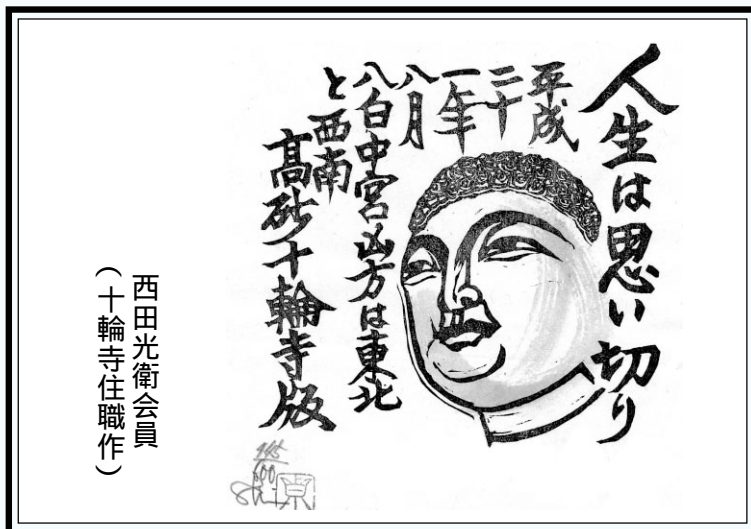 人生は思い切り
平成
二十
一年
八月
八白中宮凶方は東北
と西南
高砂十輪寺版
西田光衛会員
（十輪寺住職作）